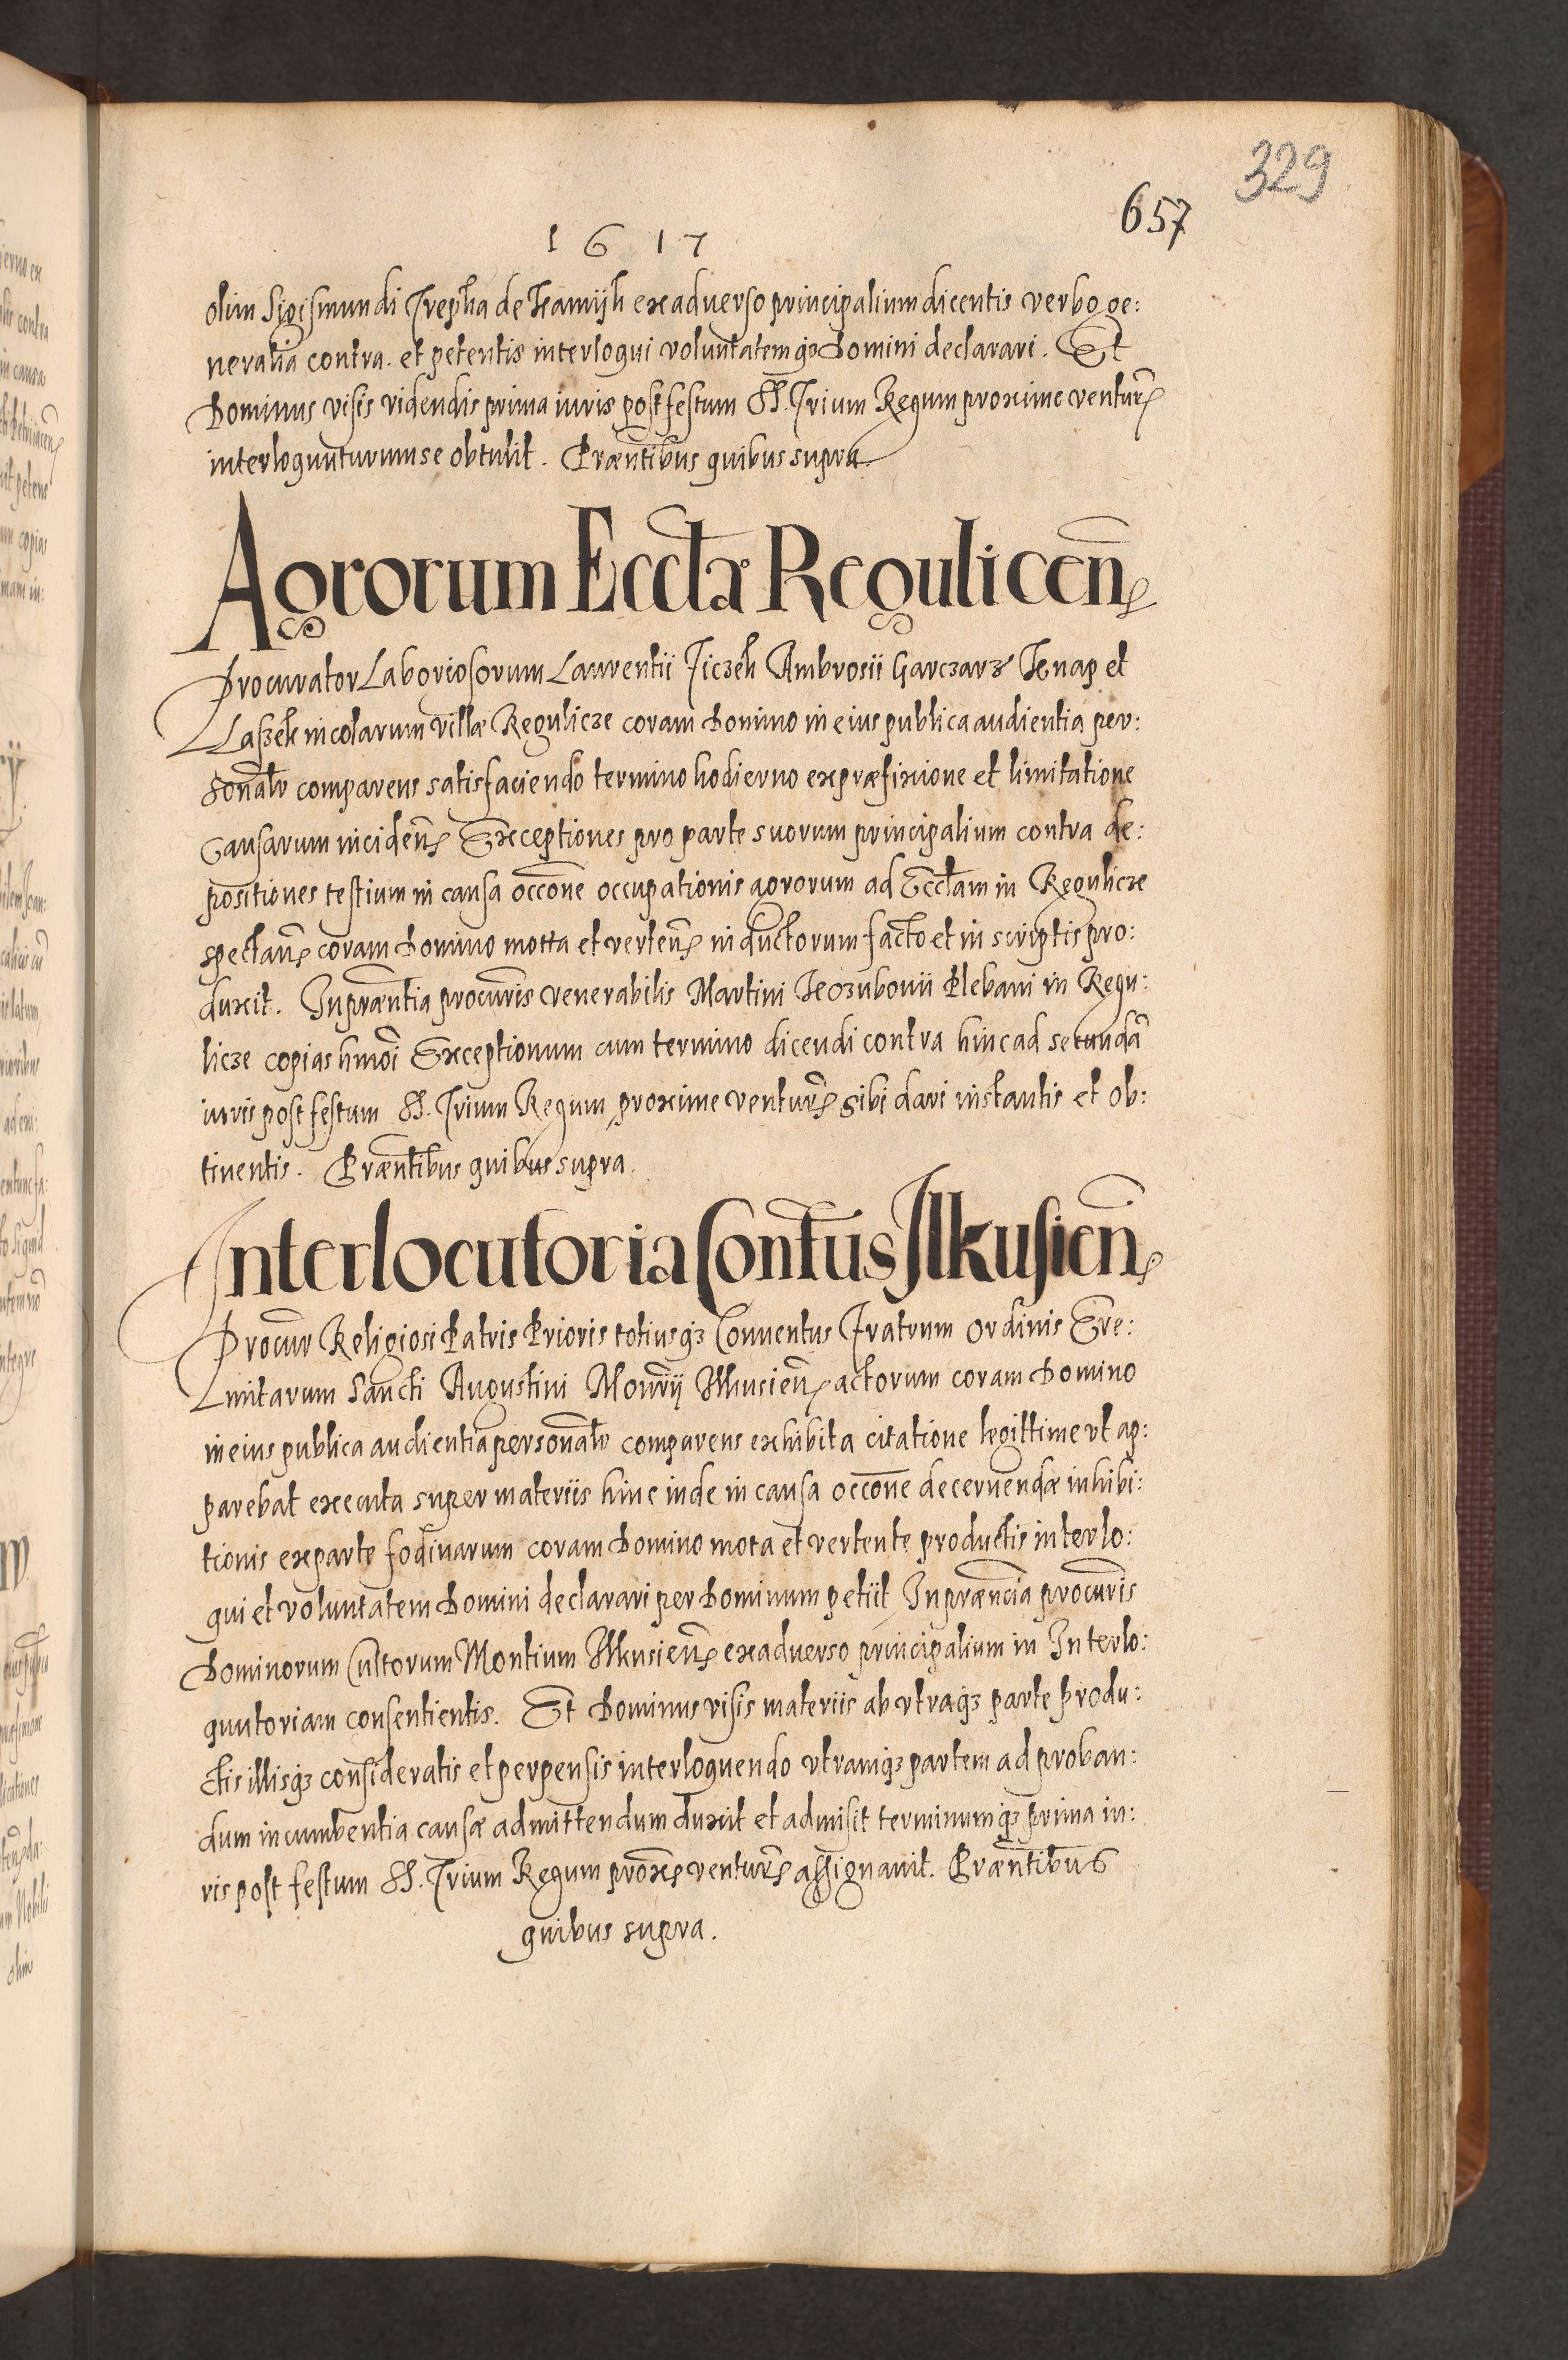 329
657
1617
olim Sigismundi Trepka de Kamÿk ex adverso principalium dicentis verbo ge:
neralia contra. et petentis interloqui voluntatemq3 Domini declarari. Et
Dominus visis videndis prima iuris post festum SS. Trium Regum proxime ventur̃
interloquuturum se obtulit. Præñtibus quibus supra.
Agrorum Eccl̃æ Regulicen̄
Procurator Laboriosorum Laurentii Jiczek Ambrosii Garczarz Knap et
Laszek incolarum villæ Regulicze coram Domino in eius publica audientia per:
sonalr̃ comparens satisfaciendo termino hodierno ex præfixione et limitatione
Causarum inciden̄ Exceptiones pro parte suorum principalium contra de:
positiones testium in causa occõne occupationis agrorum ad Eccl̃am in Regulicze
spectan̄ coram Domino motta et verten̄ inductorum facto et in scriptis pro:
duxit. In præñtia procur̃is venerabilis Martini Kozubonii Plebani in Regu:
licze copias hm̃oi Exceptionum cum termino dicendi contra hinc ad secundã
iuris post festum SS. Trium Regum proxime ventur̃ sibi dari instantis et ob:
tinentis. Præñtibus quibus supra.
Interlocutoria Conṽtus Ilkusien̄
Procur̃ Religiosi Patris Prioris totiusq3 Conventus Fratrum Ordinis Ere:
mitarum Sancti Augustini Monr̃ij Ilkusien̄ actorum coram Domino
in eius publica audientia personalr̃ comparens exhibita citatione legittime vt ap:
parebat executa super materiis hinc inde in causa occõne decernendæ inhibi:
tionis ex parte fodinarum coram Domino mota et vertente productis interlo:
qui et voluntatem Domini declarari per Dominum petiit In præñcia procur̃is
Dominorum Cultorum Montium Ilkusien̄ ex adverso principalium in Interlo:
quutoriam consentientis. Et Dominus visis materiis ab vtraq3 parte produ:
ctis illisq3 consideratis et perpensis interloquendo vtramq3 partem ad proban:
dum incumbentia causæ admittendum duxit et admisit terminumq3 prima iu:
ris post festum SS. Trium Regum prox̃e ventur̃ assignavit. Præñtibus
quibus supra.